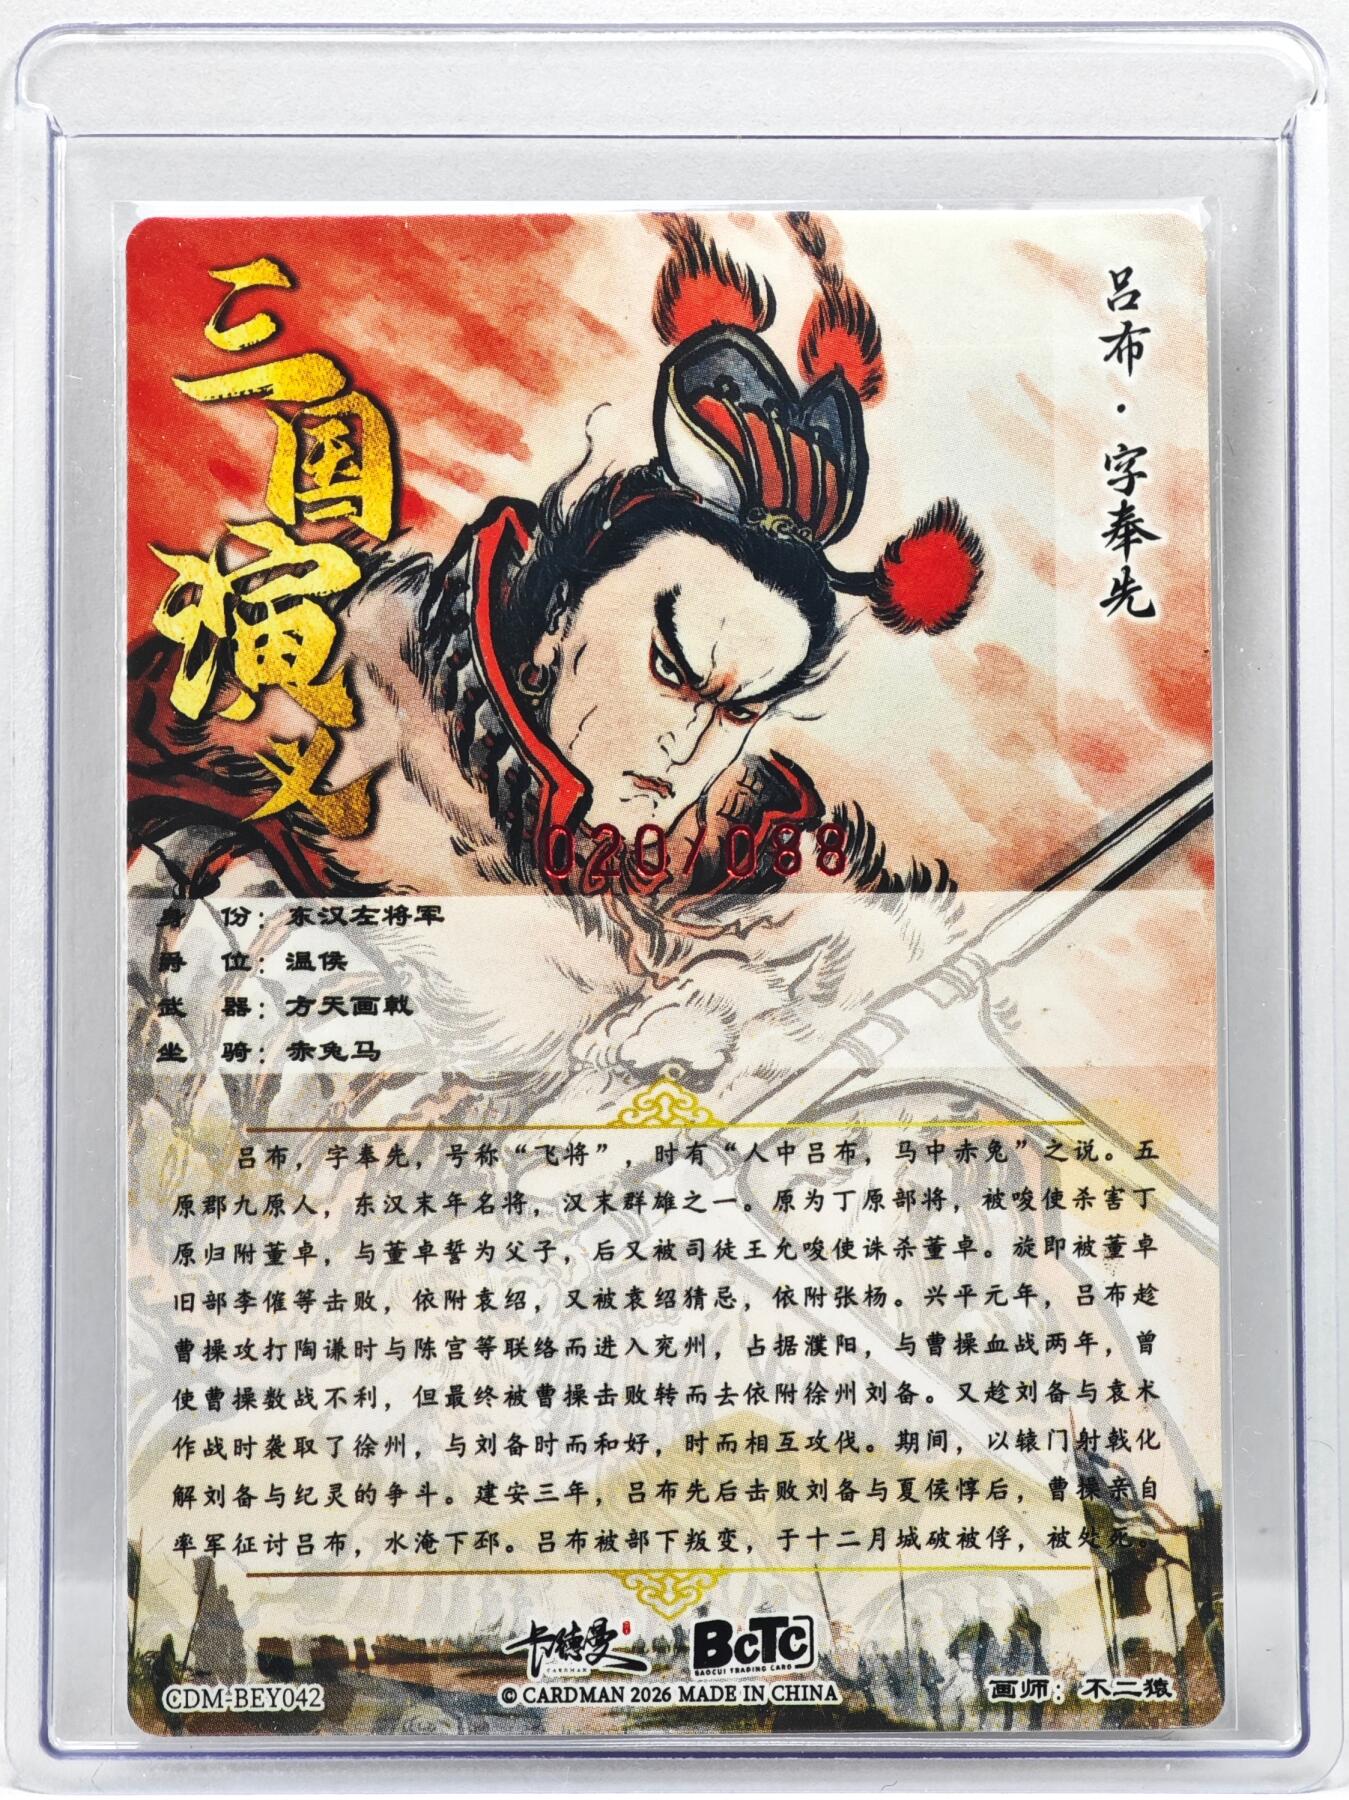 三国演义
吕布·字奉先
020/088
身 份：东汉左将军
爵 位：温侯
武 器：方天画戟
坐 骑：赤兔马
吕布，字奉先，号称“飞将”，时有“人中吕布，马中赤兔”之说。五
原郡九原人，东汉末年名将，汉末群雄之一。原为丁原部将，被唆使杀害丁
原归附董卓，与董卓誓为父子，后又被司徒王允唆使诛杀董卓。旋即被董卓
旧部李傕等击败，依附袁绍，又被袁绍猜忌，依附张杨。兴平元年，吕布趁
曹操攻打陶谦时与陈宫等联络而进入兖州，占据濮阳，与曹操血战两年，曾
使曹操数战不利，但最终被曹操击败转而去依附徐州刘备。又趁刘备与袁术
作战时袭取了徐州，与刘备时而和好，时而相互攻伐。期间，以辕门射戟化
解刘备与纪灵的争斗。建安三年，吕布先后击败刘备与夏侯惇后，曹操亲自
率军征讨吕布，水淹下邳。吕布被部下叛变，于十二月城破被俘，被处死。
卡德曼
CARDMAN
BCTC
BAOCUI TRADING CARD
CDM-BEY042
© CARDMAN 2026 MADE IN CHINA
画师：不二猿